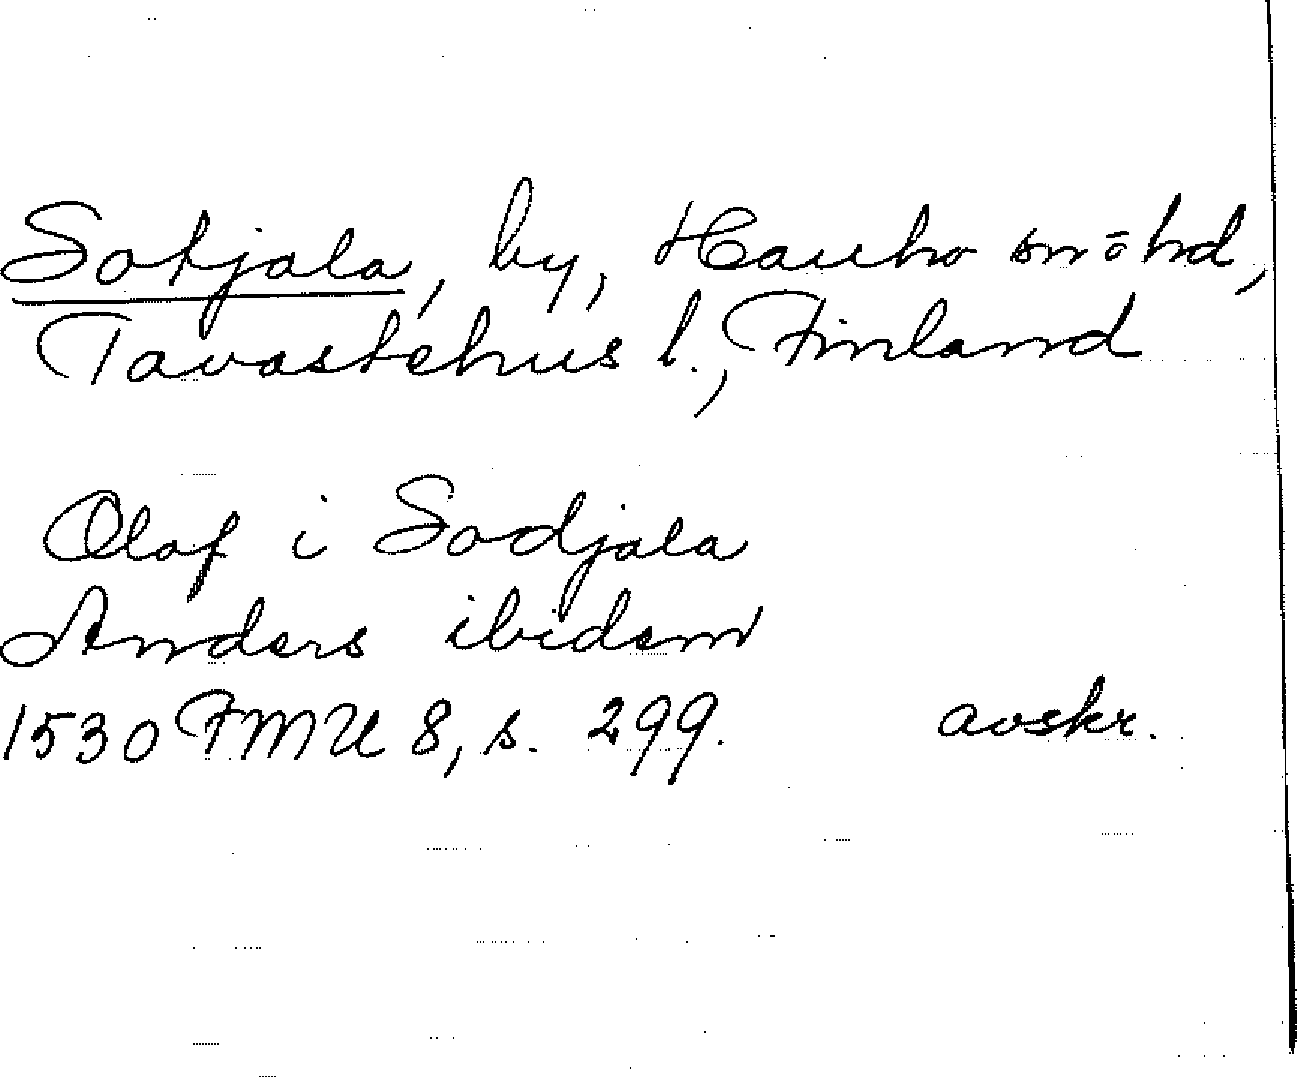 Sotjala, by, Hauho sn o hd,
Tavastehus l., Finland
Olaf i Sodjala
Anders ibidem
1530 FMU 8, s. 299. avskr.